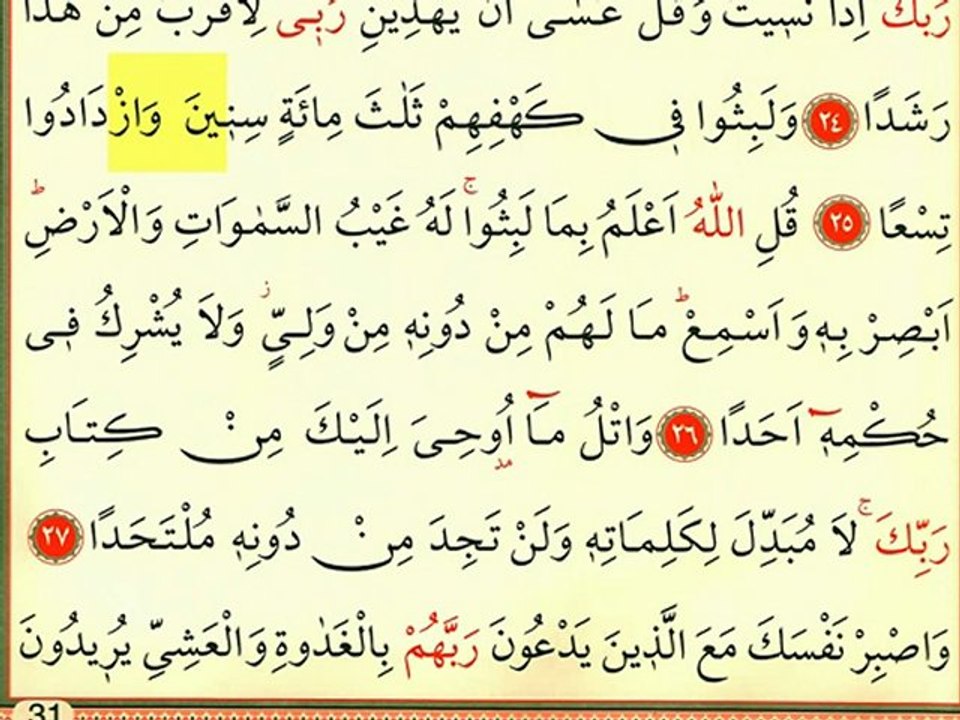 رَبَّكَ اِذَا نَسٖيتَ وَقُلْ عَسٰٓى اَنْ يَهْدِيَنِ رَبّٖى لِاَقْرَبَ مِنْ هٰذَا
رَشَدًا ﴿٢٤﴾ وَلَبِثُوا فٖى كَهْفِهِمْ ثَلٰثَ مِائَةٍ سِنٖينَ وَازْدَادُوا
تِسْعًا ﴿٢٥﴾ قُلِ اللّٰهُ اَعْلَمُ بِمَا لَبِثُواۚ لَهُ غَيْبُ السَّمٰوَاتِ وَالْاَرْضِؕ
اَبْصِرْ بِهٖ وَاَسْمِعْؕ مَا لَهُمْ مِنْ دُونِهٖ مِنْ وَلِىٍّؗ وَلَا يُشْرِكُ فٖى
حُكْمِهٖٓ اَحَدًا ﴿٢٦﴾ وَاتْلُ مَٓا اُوحِىَ اِلَيْكَ مِنْ كِتَابِ
رَبِّكَۚ لَا مُبَدِّلَ لِكَلِمَاتِهٖ وَلَنْ تَجِدَ مِنْ دُونِهٖ مُلْتَحَدًا ﴿٢٧﴾
وَاصْبِرْ نَفْسَكَ مَعَ الَّذٖينَ يَدْعُونَ رَبَّهُمْ بِالْغَدٰوةِ وَالْعَشِىِّ يُرٖيدُونَ
31